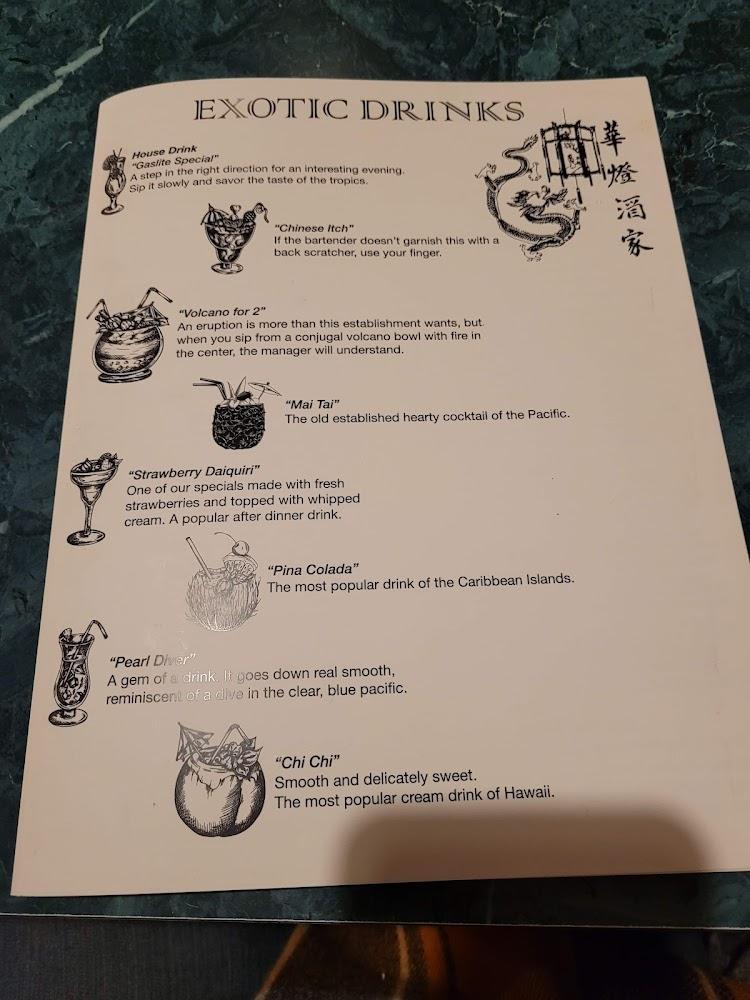 EXOTIC DRINKS
華燈酒家
House Drink
"Gaslite Special"
A step in the right direction for an interesting evening.
Sip it slowly and savor the taste of the tropics.
"Chinese Itch"
If the bartender doesn't garnish this with a
back scratcher, use your finger.
"Volcano for 2"
An eruption is more than this establishment wants, but
when you sip from a conjugal volcano bowl with fire in
the center, the manager will understand.
"Mai Tai"
The old established hearty cocktail of the Pacific.
"Strawberry Daiquiri"
One of our specials made with fresh
strawberries and topped with whipped
cream. A popular after dinner drink.
"Pina Colada"
The most popular drink of the Caribbean Islands.
"Pearl Diver"
A gem of a drink. It goes down real smooth,
reminiscent of a dive in the clear, blue pacific.
"Chi Chi"
Smooth and delicately sweet.
The most popular cream drink of Hawaii.